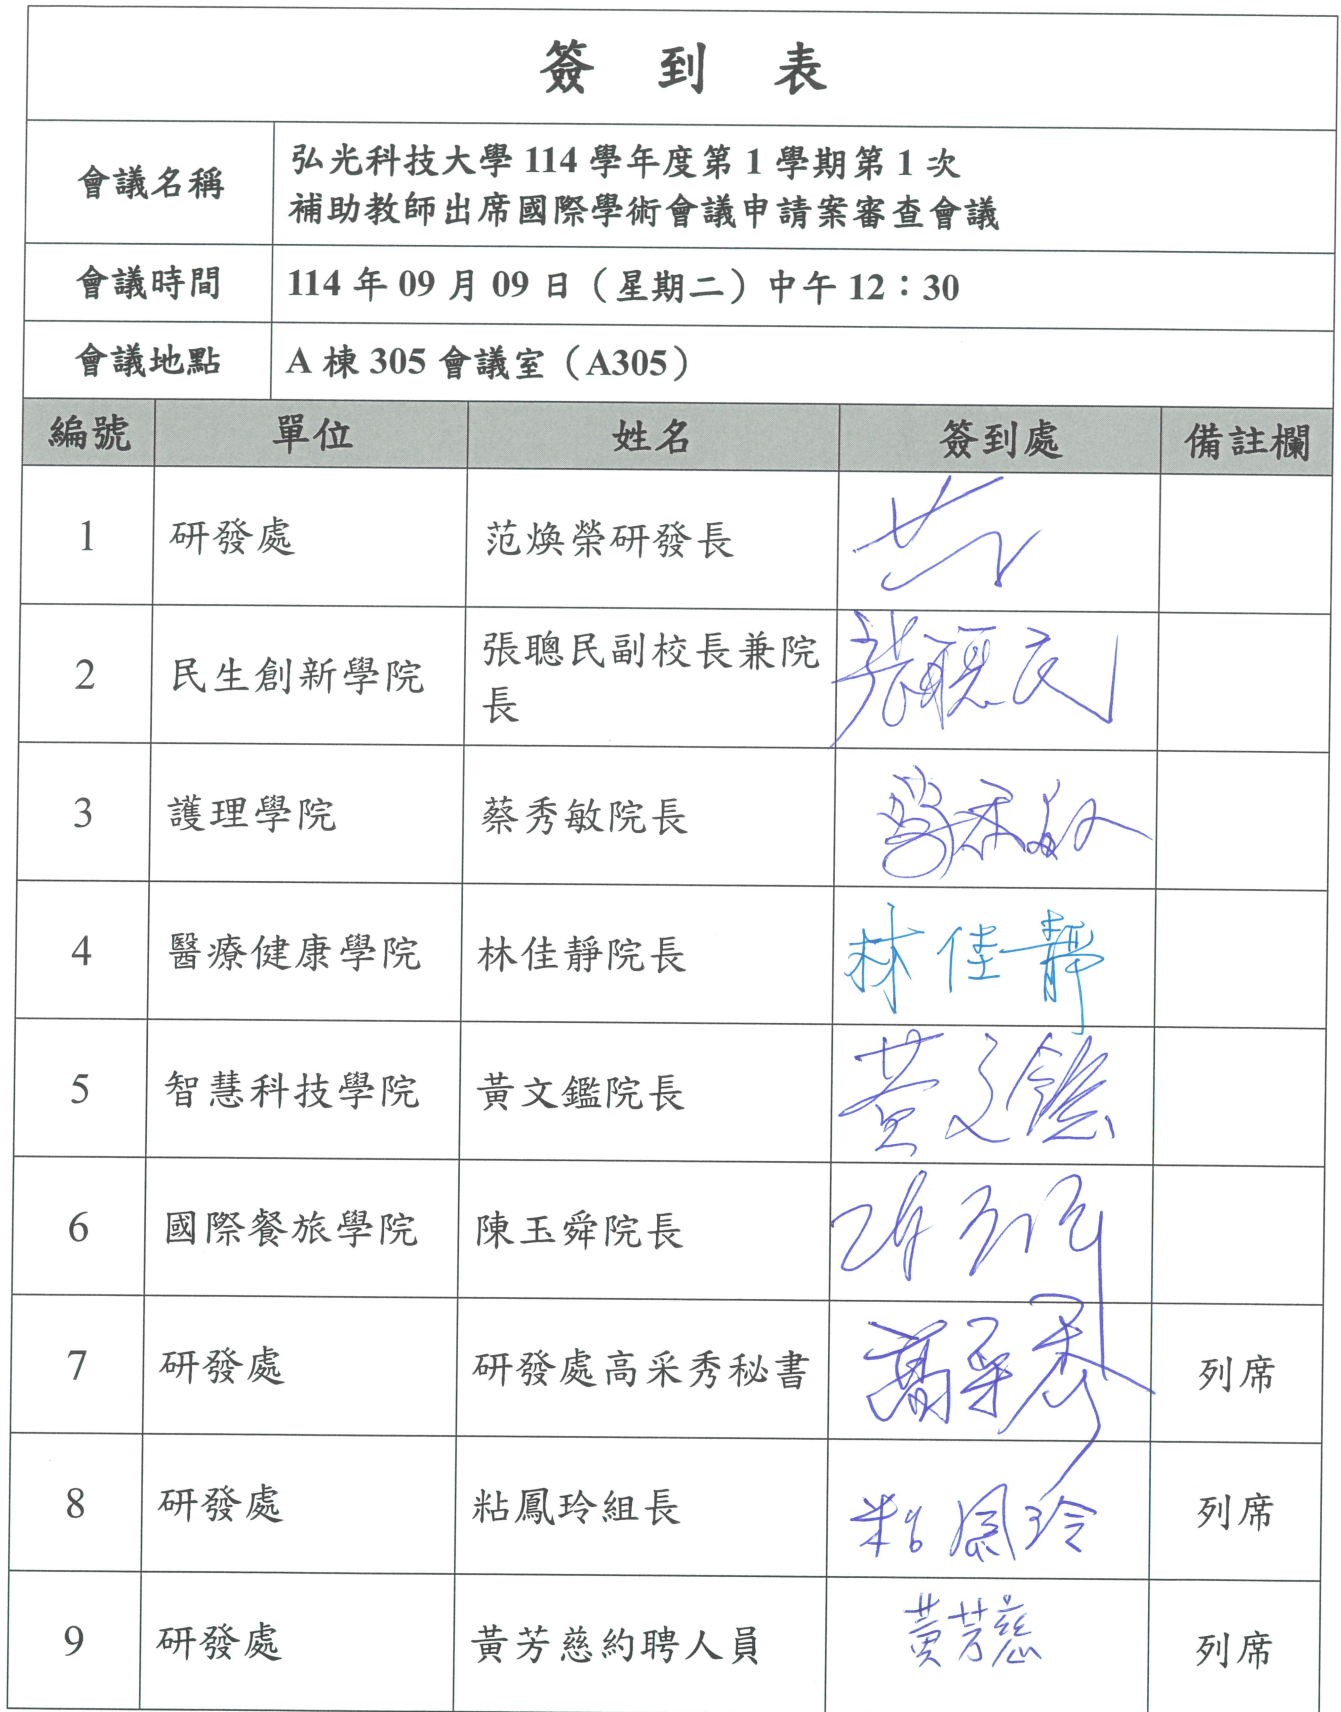 簽到表
會議名稱
弘光科技大學 114 學年度第 1 學期第 1 次
補助教師出席國際學術會議申請案審查會議
會議時間 114 年 09 月 09 日（星期二）中午 12：30
會議地點 A 棟 305 會議室（A305）
編號 單位 姓名 簽到處 備註欄
1 研發處 范煥榮研發長
2 民生創新學院 張聰民副校長兼院
長 張聰民
3 護理學院 蔡秀敏院長 蔡秀敏
4 醫療健康學院 林佳靜院長 林佳靜
5 智慧科技學院 黃文鑑院長 黃文鑑
6 國際餐旅學院 陳玉舜院長
7 研發處 研發處高采秀秘書 高采秀 列席
8 研發處 粘鳳玲組長 粘鳳玲 列席
9 研發處 黃芳慈約聘人員 黃芳慈 列席